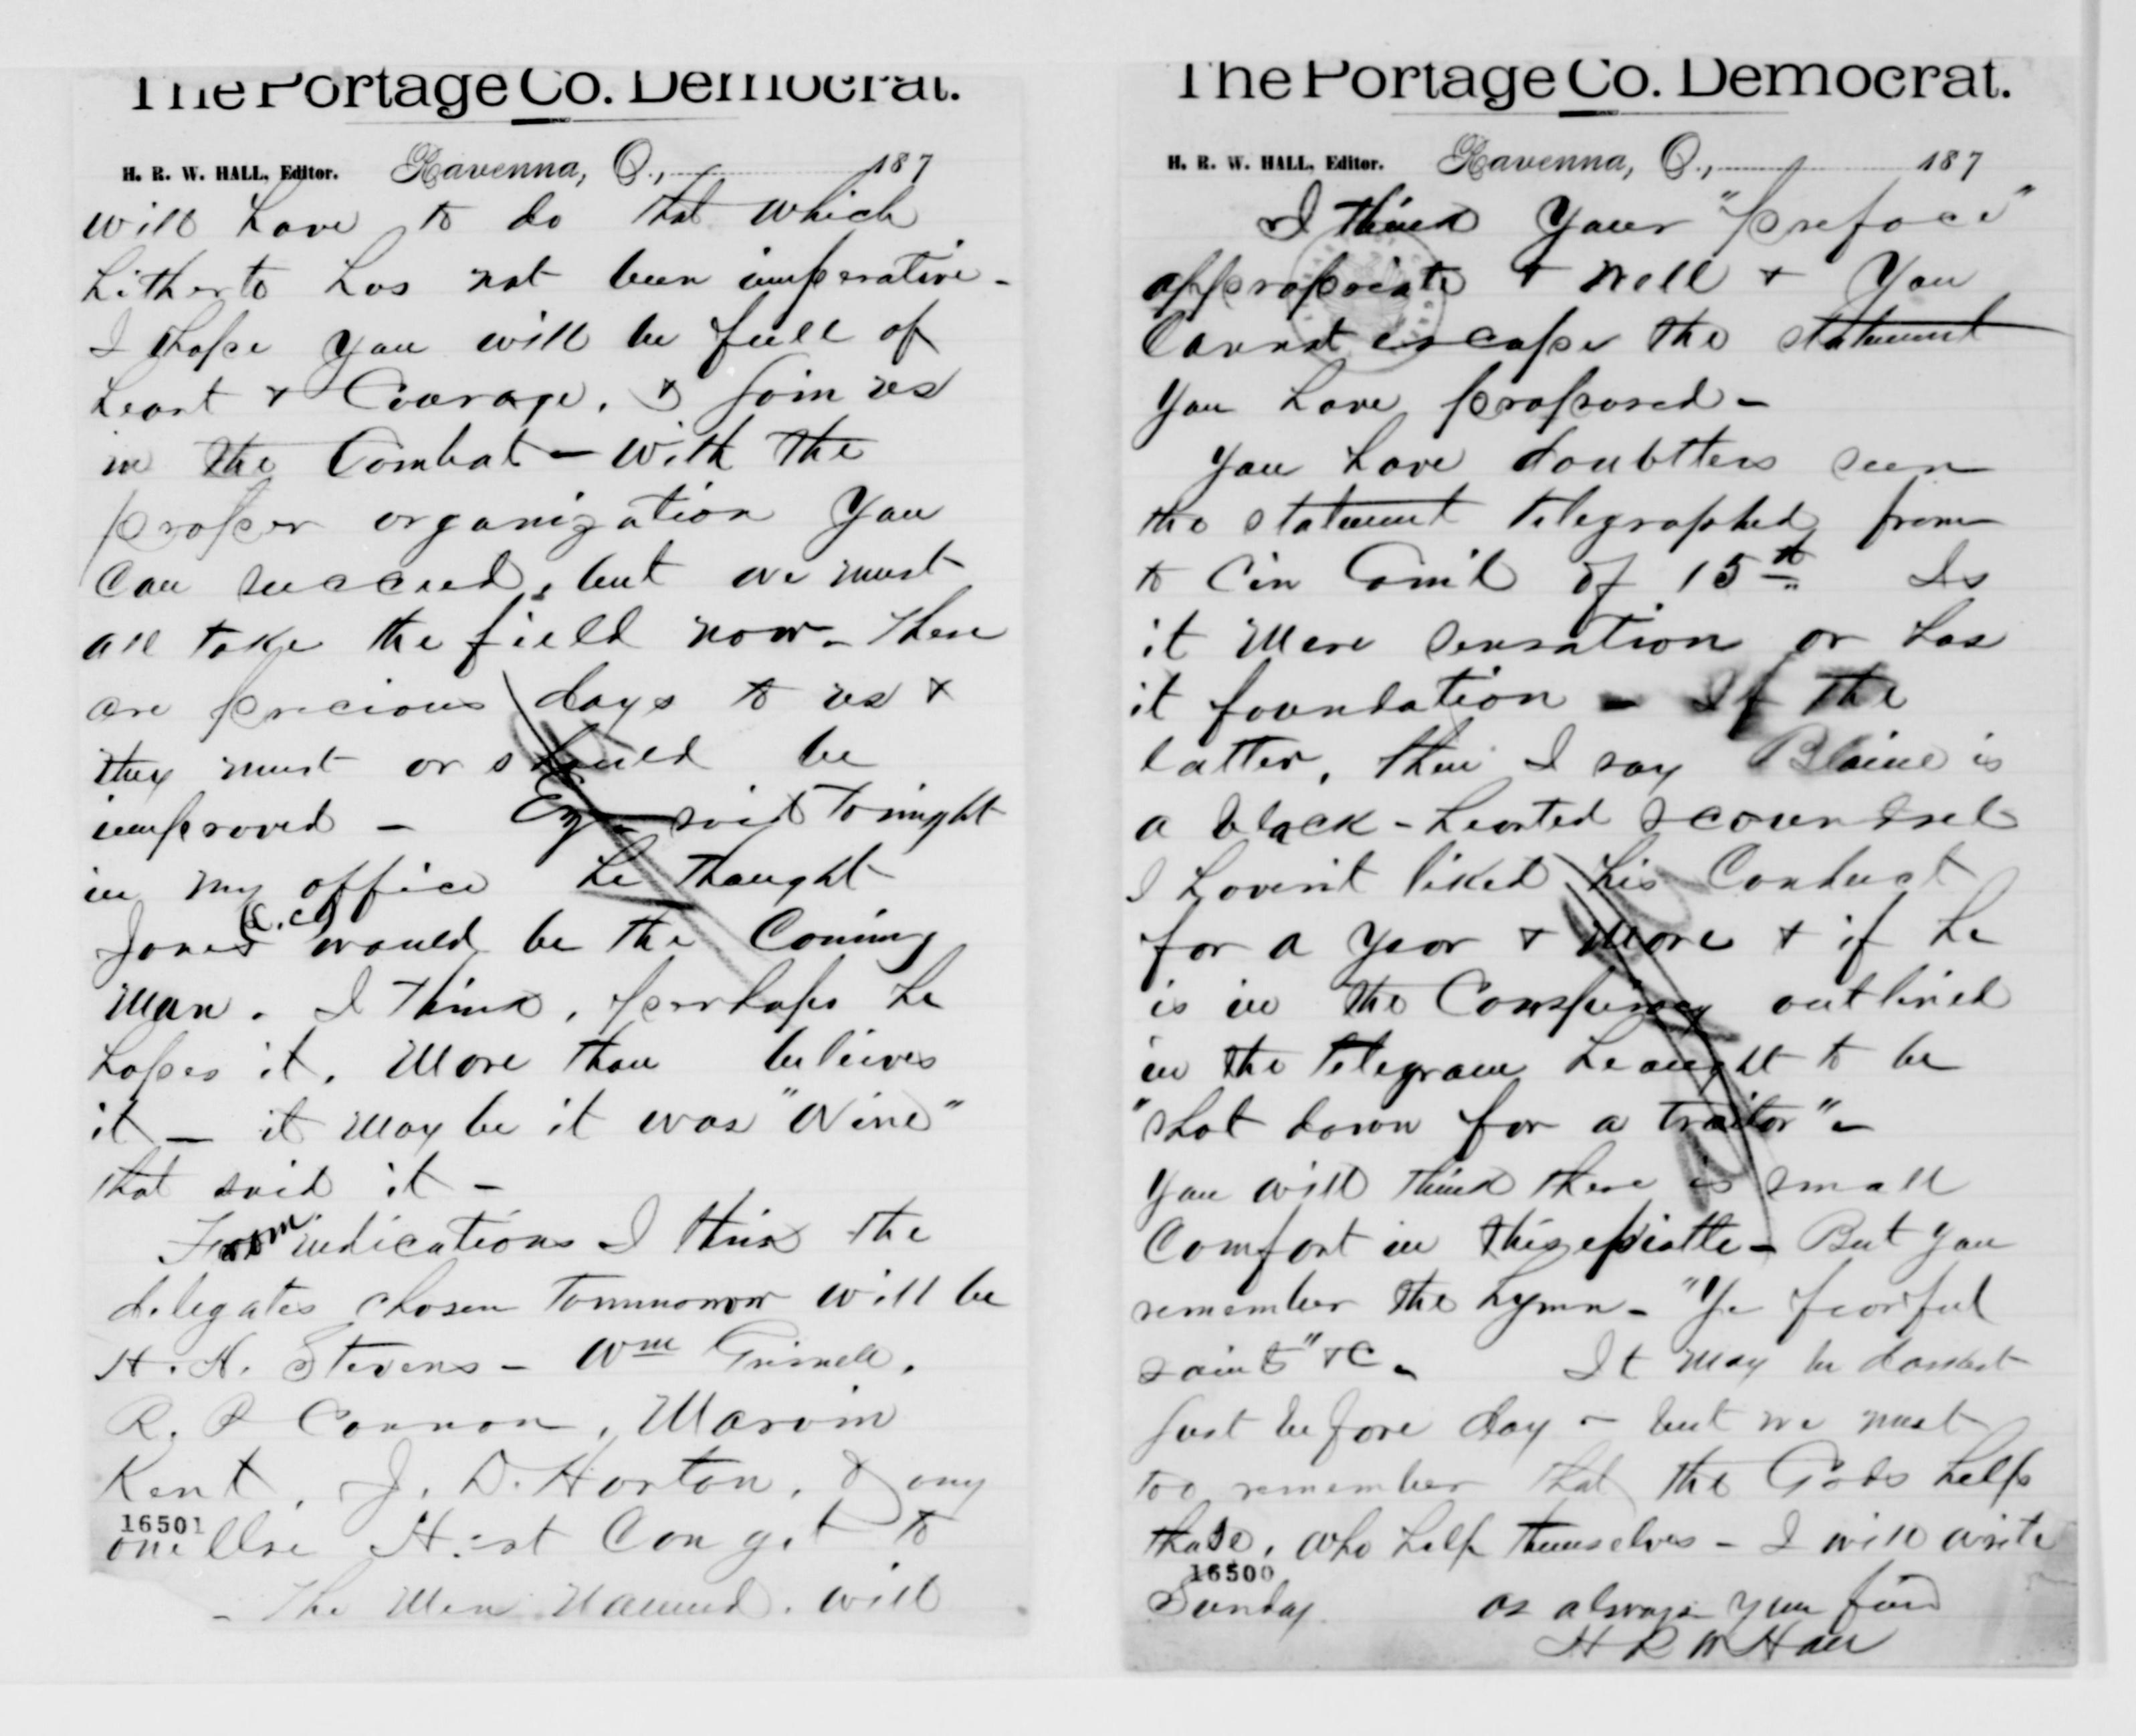 The Portage Co. Democrat.
H. R. W. HALL, Editor. Ravenna, O., 187
will have to do that which
hitherto has not been imperative -
I hope you will be full of
heart & Courage, & join us
in the Combat - with the
proper organization you
can succeed, but we must
all take the field now - These
are precious days to us &
they must or should be
improved - said tonight
in my office he thought
Jones (C.C.) would be the Coming
Man. I think, perhaps he
hopes it, more than believes
it - it may be it was "Wine"
that said it -
From indications I think the
delegates chosen tommorrow will be
H. H. Stevens - Wm Grinell,
R. P Cannon, Marvin
Kent, J. D. Horton, & any
one Else can get to
16501
- The Men Named, will
The Portage Co. Democrat.
H. R. W. HALL, Editor. Ravenna, O., 187
I think your "preface"
appropriate & well & you
Cannot escape the statement
you have proposed -
you have doubtless seen
the statement telegraphed from
to Cin Com'l of 15th Is
it mere sensation or has
it foundation - If the
latter, then I say Blaine is
a black-hearted scoundrel
I haven't liked his Conduct
for a year & more & if he
is in the Conspiracy outlined
in the telegram he aught to be
"shot down for a traitor" -
you will think there is small
Comfort in this epistle - But you
remember the hymn - "Ye fearful
saints" &c - It may be darkest
just before day - but we must
too remember that the Gods help
those, who help themselves - I will write
16500
Sunday as always your frnd
H R W Hall